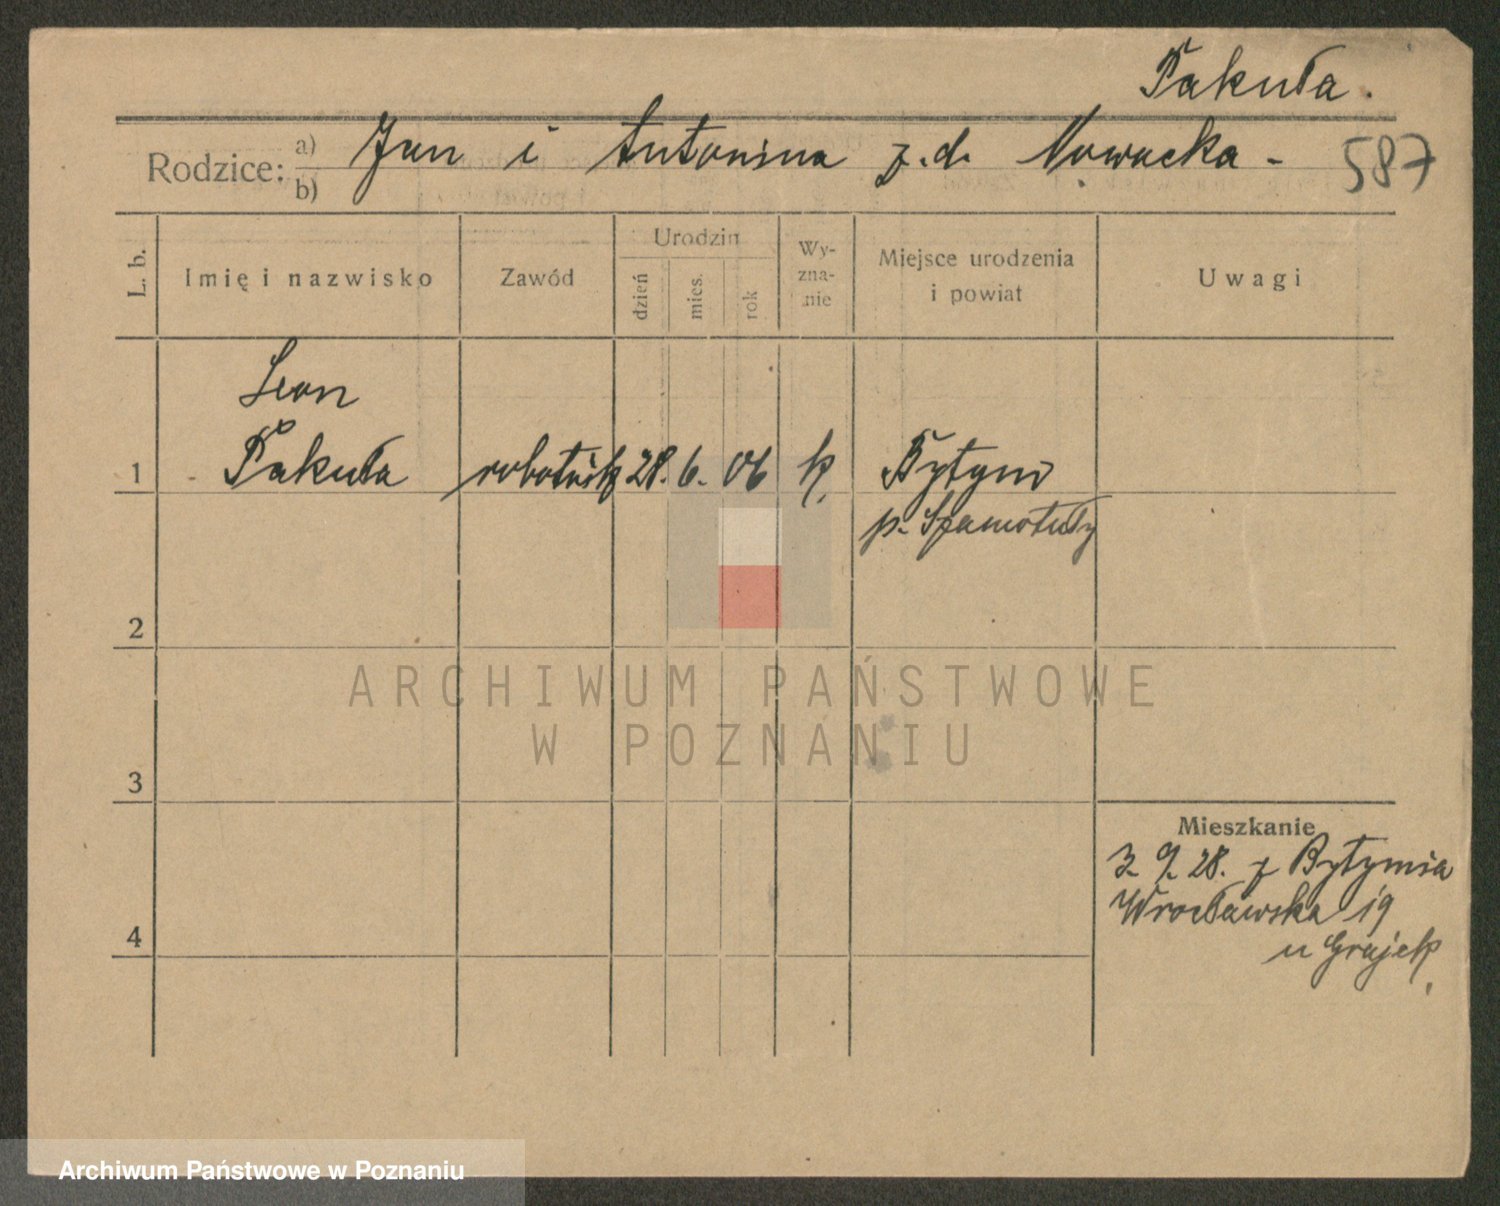 Pakuła.
Rodzice: a) b) Jan i Antonina z. d. Nowacka -
587
L. b.
Imię i nazwisko
Zawód
Urodzin
dzień
mies.
rok
Wy-
zna-
nie
Miejsce urodzenia
i powiat
Uwagi
Leon
1 Pakuła robotnik 28. 6. 06 k. Bytyń
p. Szamotuły
2
ARCHIWUM PAŃSTWOWE
W POZNANIU
3
Mieszkanie
3. 9. 28. z Bytynia
Wrocławska 19
u Grajek
4
Archiwum Państwowe w Poznaniu